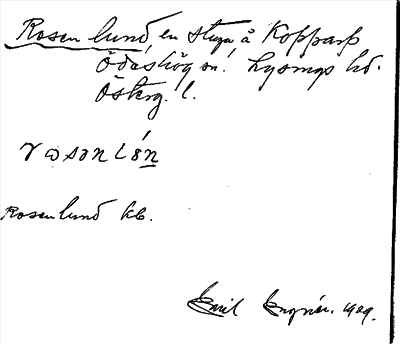 Rosenlund en stuga å Kopparp
Ödeshög sn. Lysings hd.
Österg. l.
rosənlön
Rosenlund kb.
Emil 1929.